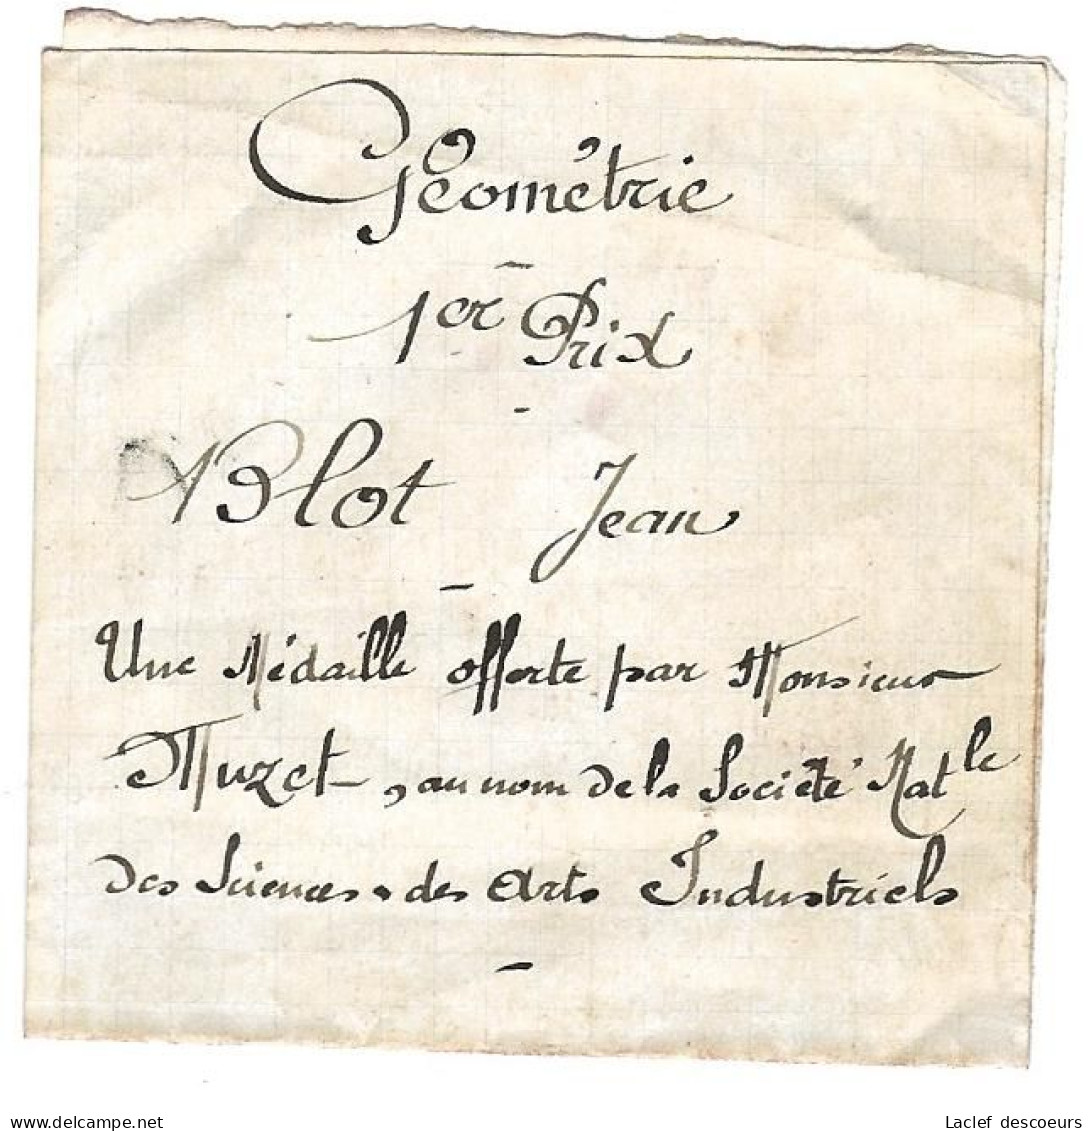 Géométrie
1er Prix
Blot Jean
Une Médaille offerte par Monsieur
Muzet, au nom de la Société Natle
des Sciences, des Arts Industriels
www.delcampe.net
Laclef descoeurs